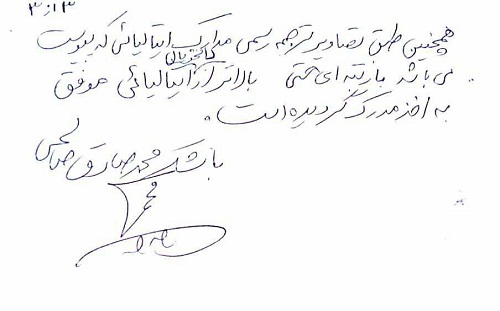 ۳ از ۳
همچنین طبق تصاویر ترجمه رسمی مدارک ایتالیائی که پیوست
می باشد با رتبه ای حتی بالاتر از ایتالیائی موفق
به اخذ مدرک گردیده است.
با تشکر محمد صادق صالحی